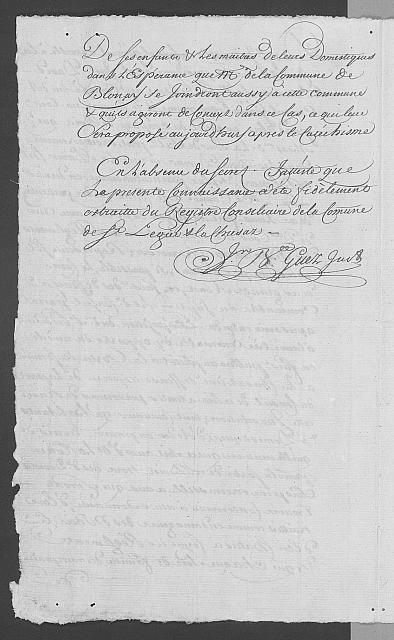 De ses enfants & Les maitres de leurs Domestiques
dans l'Esperance que Mrs de la Commune de
Blonay se Joindront aussy a cette commune
& quils agiront de Concert dans ce Cas, ce qui leur
Sera proposé aujourdhuy apres le Catechisme
En l'absence du Secret. J'atteste que
La presente Connaissance a été fidelement
extraitte du Registre Consiliaire de la Comune
de St Legier & la Chiesaz —